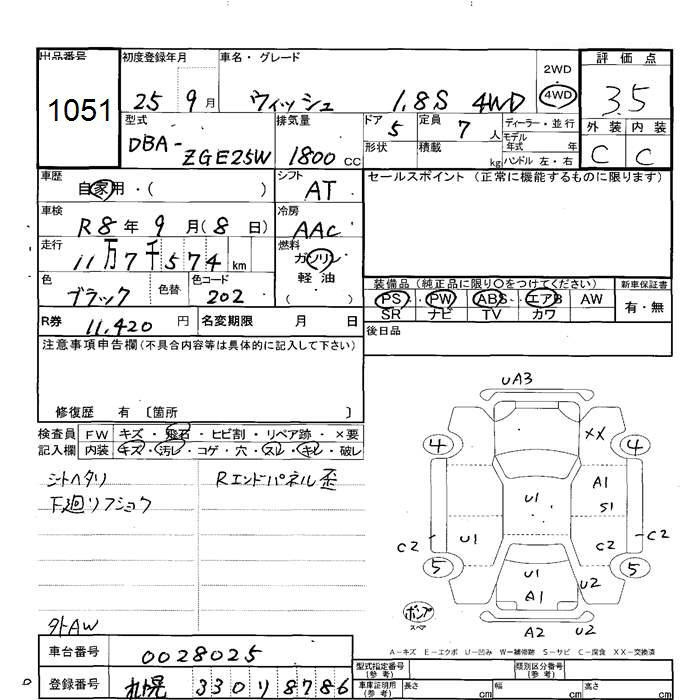 出品番号 初度登録年月 車名・グレード 2WD 評価点
1051 25 9月 ウィッシュ 1.8S 4WD 4WD 3.5
型式 排気量 ドア 5 定員 7 人 ディーラー・並行 外装 内装
DBA-ZGE25W 1800 CC 形状 積載 kg モデル年式 年 C C
ハンドル 左・右
車歴 自家用・( ) シフト AT セールスポイント (正常に機能するものに限ります)
車検 R8年 9月(8日) 冷房 AAC
走行 11万7千574 km 燃料 ガソリン
軽油
( )
色 ブラック 色替 色コード 202 装備品(純正品に限り○をつけてください) 新車保証書
PS・PW・ABS・エアB AW 有・無
R券 11,420 円 名変期限 月 日 SR ナビ TV カワ
注意事項申告欄(不具合内容等は具体的に記入して下さい) 後日品
修復歴 有 〔箇所 〕
検査員 FW キズ・飛石・ヒビ割・リペア跡・×要
記入欄 内装 キズ・汚レ・コゲ・穴・スレ・キレ・破レ
シートヘタリ Rエンドパネル歪
下廻リフショク
外AW
UA3
4 XX 4
A1
U1 S1
C2 U1 C2 C2
5 U1 U2 5
A1
ポンプ
スペア
A2 U2
A-キズ E-エクボ U-凹み W-補修跡 S-サビ C-腐食 XX-交換済
車台番号 0028025 型式指定番号(参考) 類別区分番号(参考)
登録番号 札幌 330 リ 8786 車庫証明用(参考) 長さ cm 幅 cm 高さ cm